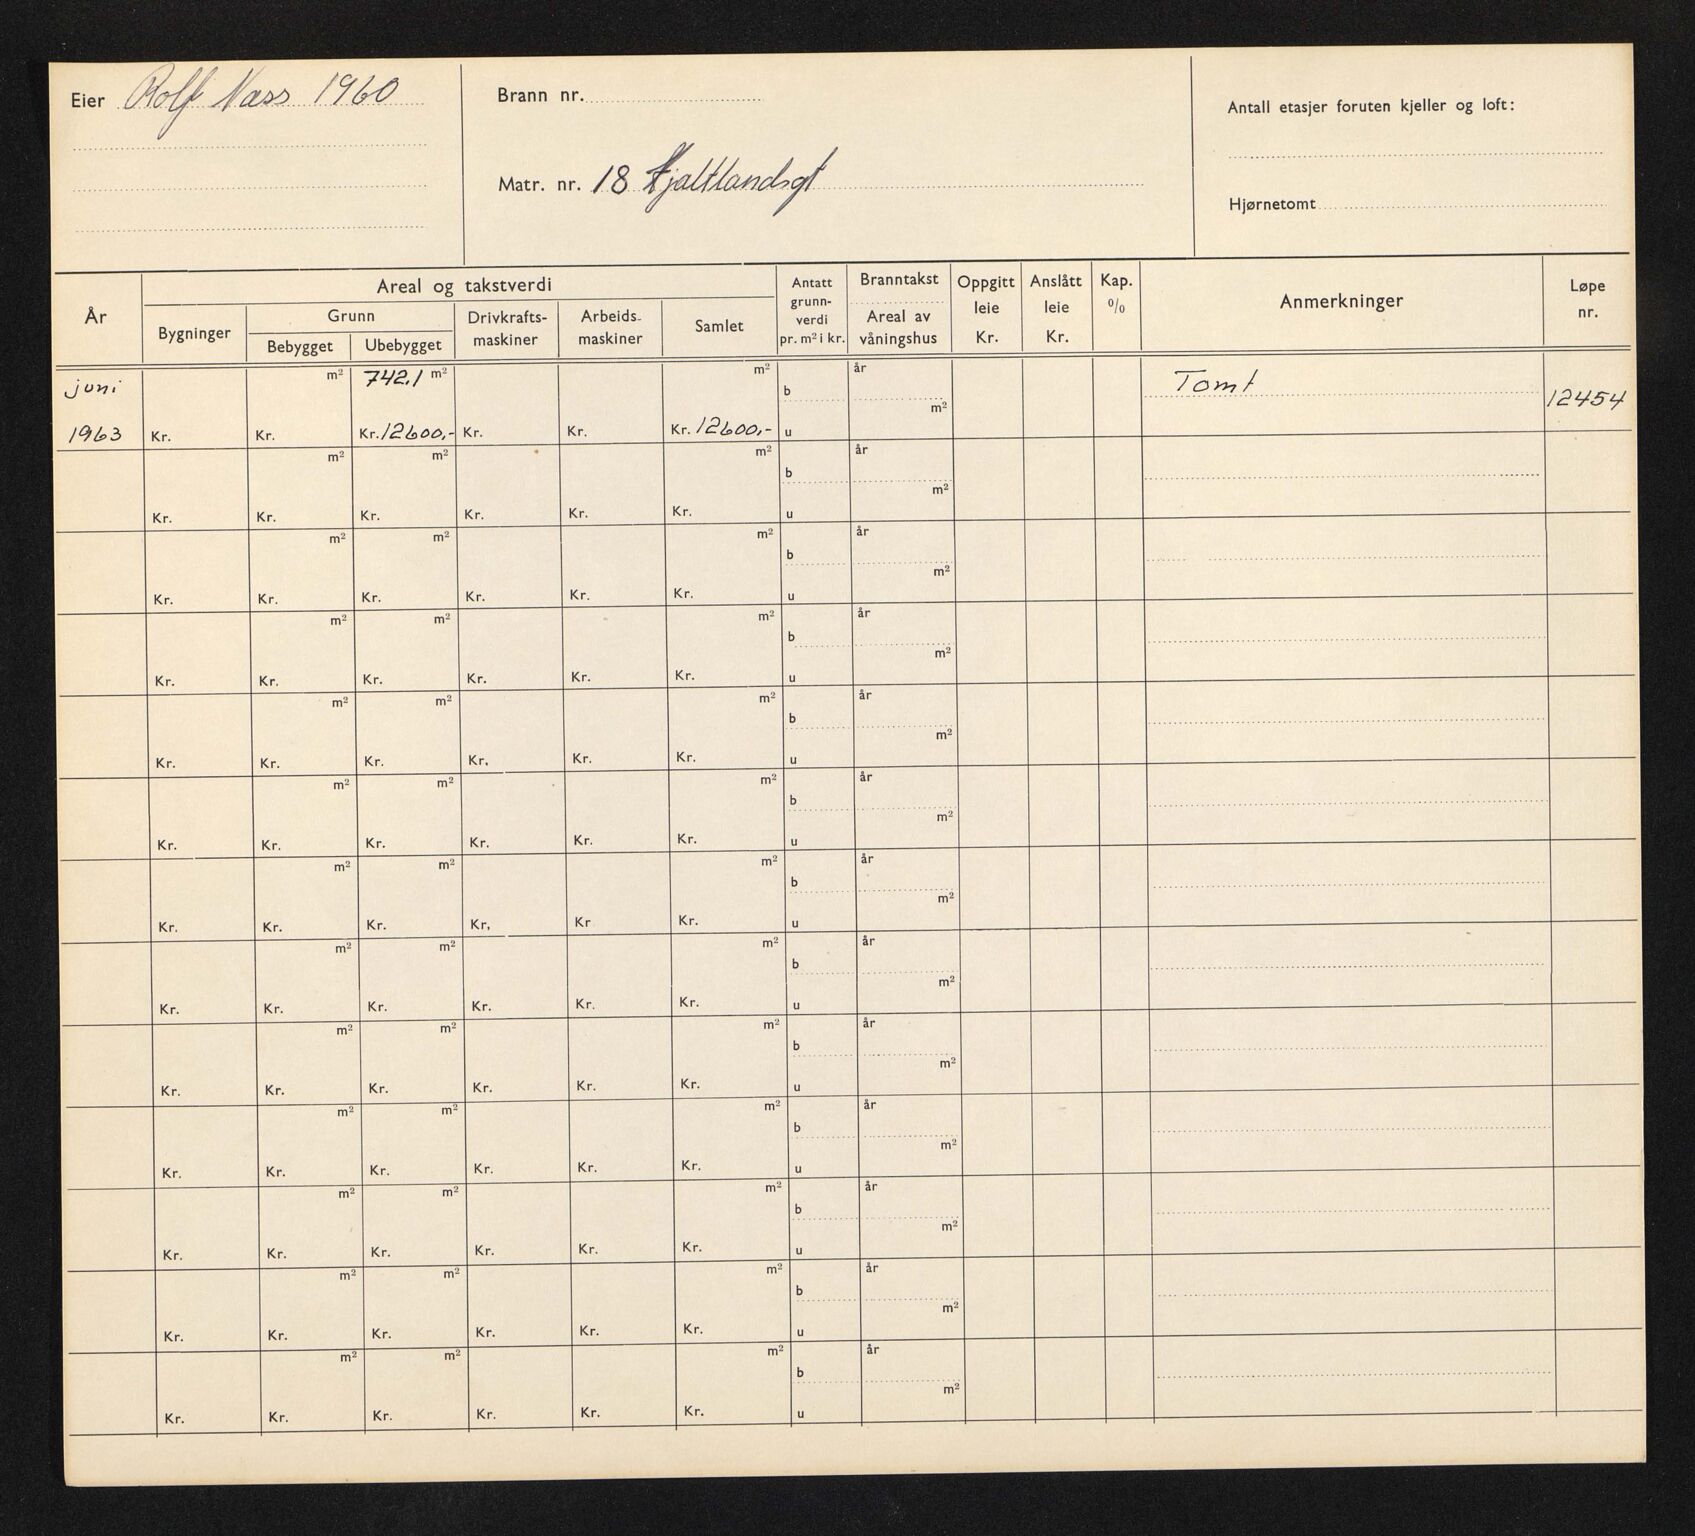 Eier Rolf Næss 1960
Brann nr.
Matr. nr. 18 Hjaltlandsgt
Antall etasjer foruten kjeller og loft:
Hjørnetomt
År
Areal og takstverdi
Bygninger
Grunn
Bebygget
Ubebygget
Drivkrafts-
maskiner
Arbeids-
maskiner
Samlet
Antatt
grunn-
verdi
pr. m² i kr.
Branntakst
Areal av
våningshus
Oppgitt
leie
Kr.
Anslått
leie
Kr.
Kap.
%
Anmerkninger
Løpe
nr.
juni m² 742,1 m² m² b år m² Tomt 12454
1963 Kr. Kr. Kr. 12600,- Kr. Kr. Kr. 12600,- u
m² m² m² b år m²
Kr. Kr. Kr. Kr. Kr. Kr. u
m² m² m² b år m²
Kr. Kr. Kr. Kr. Kr. Kr. u
m² m² m² b år m²
Kr. Kr. Kr. Kr. Kr. Kr. u
m² m² m² b år m²
Kr. Kr. Kr. Kr. Kr. Kr. u
m² m² m² b år m²
Kr. Kr. Kr. Kr. Kr. Kr. u
m² m² m² b år m²
Kr. Kr. Kr. Kr. Kr Kr. u
m² m² m² b år m²
Kr. Kr. Kr. Kr. Kr. Kr. u
m² m² m² b år m²
Kr. Kr. Kr. Kr. Kr. Kr. u
m² m² m² b år m²
Kr. Kr. Kr. Kr. Kr. Kr. u
m² m² m² b år m²
Kr. Kr. Kr. Kr. Kr. Kr. u
m² m² m² b år m²
Kr. Kr. Kr. Kr. Kr. Kr. u
m² m² m² b år m²
Kr. Kr. Kr. Kr. Kr. Kr. u